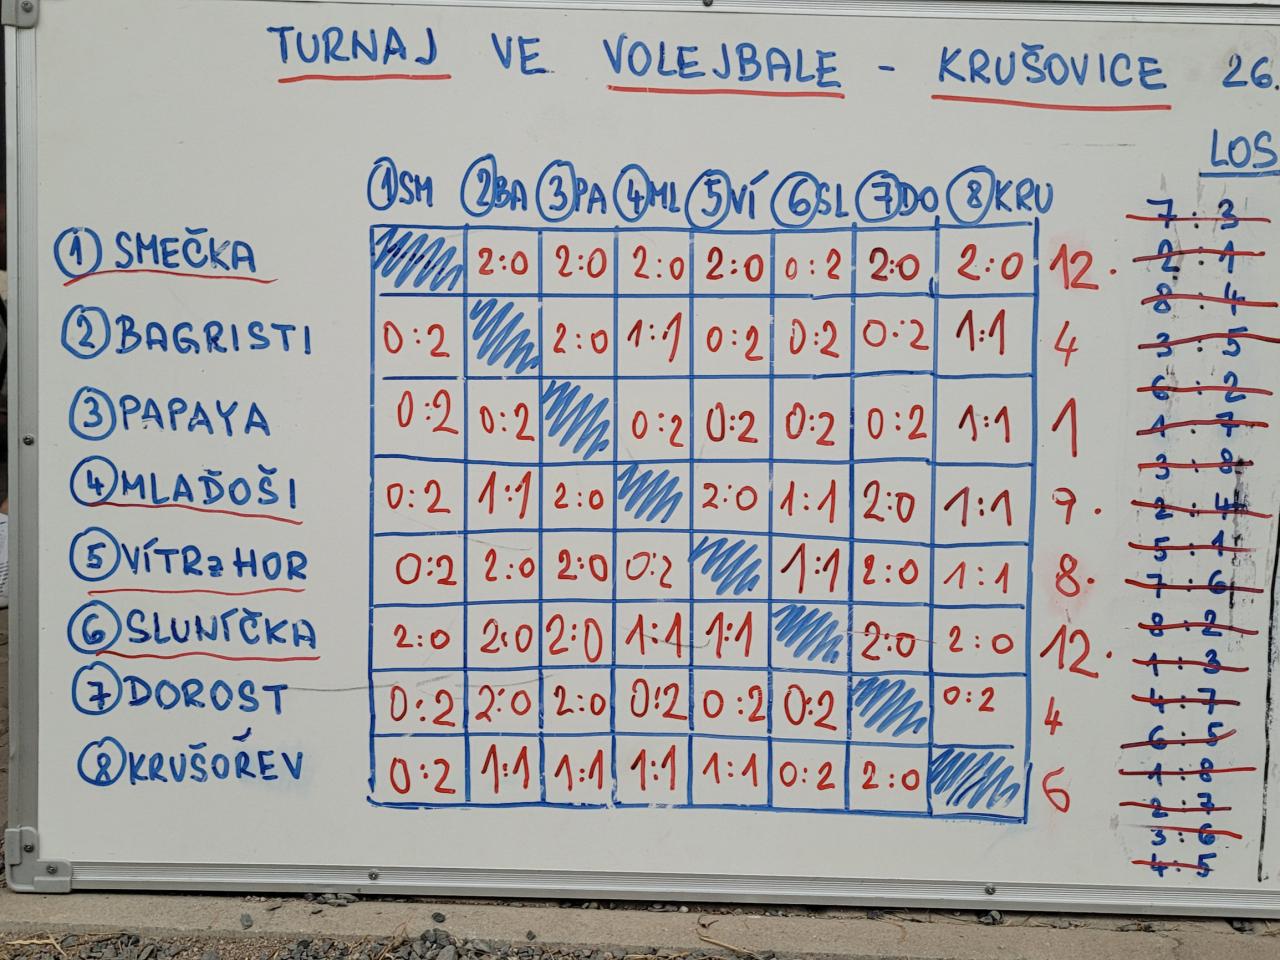 TURNAJ VE VOLEJBALE - KRUŠOVICE 26.
LOS
①SM ②BA ③PA ④ML ⑤VÍ ⑥SL ⑦DO ⑧KRU
① SMEČKA 2:0 2:0 2:0 2:0 0:2 2:0 2:0 12.
② BAGRISTI 0:2 2:0 1:1 0:2 0:2 0:2 1:1 4
③ PAPAYA 0:2 0:2 0:2 0:2 0:2 0:2 1:1 1
④ MLAĎOŠI 0:2 1:1 2:0 2:0 1:1 2:0 1:1 9.
⑤ VÍTR z HOR 0:2 2:0 2:0 0:2 1:1 2:0 1:1 8.
⑥ SLUNÍČKA 2:0 2:0 2:0 1:1 1:1 2:0 2:0 12.
⑦ DOROST 0:2 2:0 2:0 0:2 0:2 0:2 0:2 4
⑧ KRUŠOŘEV 0:2 1:1 1:1 1:1 1:1 0:2 2:0 6
7:3
2:1
8:4
3:5
6:2
1:7
3:8
2:4
5:1
7:6
8:2
1:3
4:7
6:5
1:8
2:7
3:6
4:5